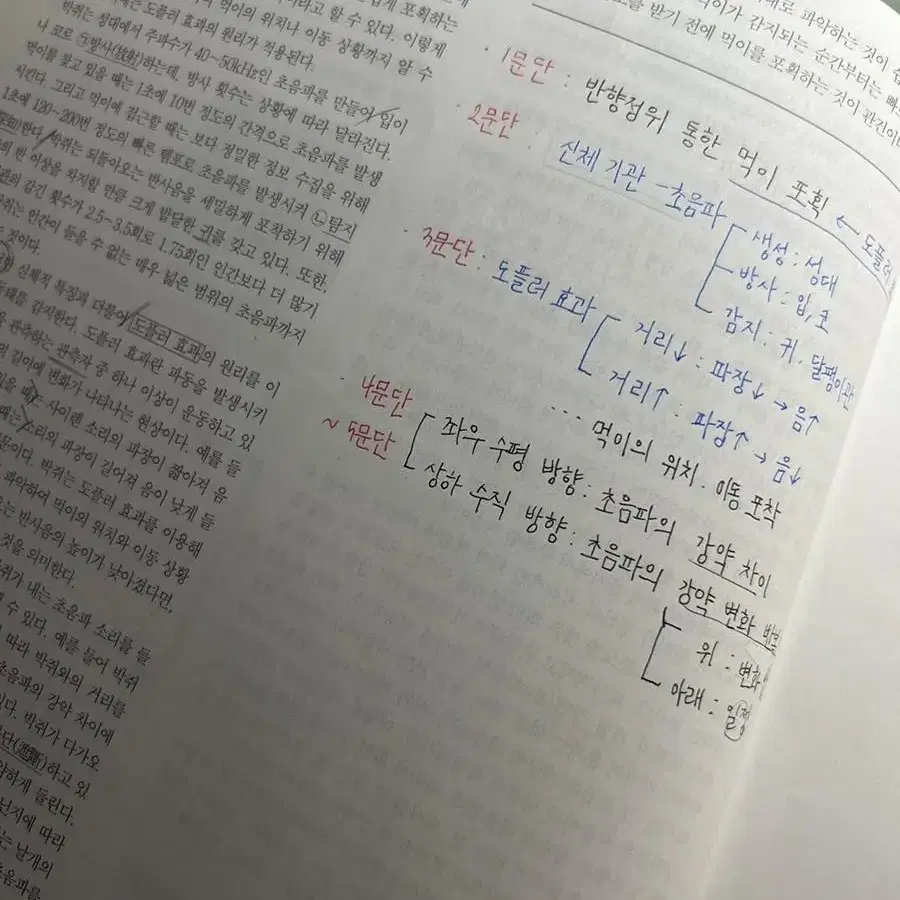 이라고 할 수 있다. 이렇게
먹이의 위치나 이동 상황까지 알 수
도플러 효과의 원리가 적용된다.
박쥐는 성대에서 주파수가 40~50kHz인 초음파를 만들어 입이
나 코로 ㉠방사(放射)하는데, 방사 횟수는 상황에 따라 달라진다.
먹이를 찾고 있을 때는 1초에 10번 정도의 간격으로 초음파를 발생
시킨다. 그리고 먹이에 접근할 때는 보다 정밀한 정보 수집을 위해
1초에 120~200번 정도의 빠른 템포로 초음파를 발생시켜 ㉡탐지
한다. 박쥐는 되돌아오는 반사음을 세밀하게 포착하기 위해
의 반 이상을 차지할 만큼 크게 발달한 귀를 갖고 있다. 또한,
관의 감긴 횟수가 2.5~3.5회로 1.75회인 인간보다 더 많기
박쥐는 인간이 들을 수 없는 매우 넓은 범위의 초음파까지
것이다.
신체적 특징과 더불어 도플러 효과의 원리를 이
동태를 감지한다. 도플러 효과란 파동을 발생시키
관측하는 관측자 중 하나 이상이 운동하고 있
의 길이에 변화가 나타나는 현상이다. 예를 들
있을 때는 사이렌 소리의 파장이 짧아져 음
때는 소리의 파장이 길어져 음이 낮게 들
문이다. 박쥐는 도플러 효과를 이용해
파악하여 먹이의 위치와 이동 상황
오는 반사음의 높이가 낮아졌다면,
것을 의미한다.
박쥐가 내는 초음파 소리를 들
수 있다. 예를 들어 박쥐
따라 박쥐와의 거리를
초음파의 강약 차이에
있다. 박쥐가 다가오
차단(遮斷)하고 있
약하게 들린다.
는지에 따라
는 날개의
초음파를
파악하는 것이
먹이가 감지되는 순간부터는 빠
를 받기 전에 먹이를 포획하는 것이 관건이
· 1문단 : 반향정위 통한 먹이 포획 ← 도플러
· 2문단 : 신체 기관 - 초음파
생성 : 성대
방사 : 입, 코
감지 : 귀. 달팽이관
· 3문단 : 도플러 효과
거리↓ : 파장↓ → 음↑
거리↑ : 파장↑ → 음↓
··· 먹이의 위치. 이동 포착
· 4문단
~ 5문단
좌우 수평 방향 : 초음파의 강약 차이
상하 수직 방향 : 초음파의 강약 변화
위 : 변화
아래 : 일정